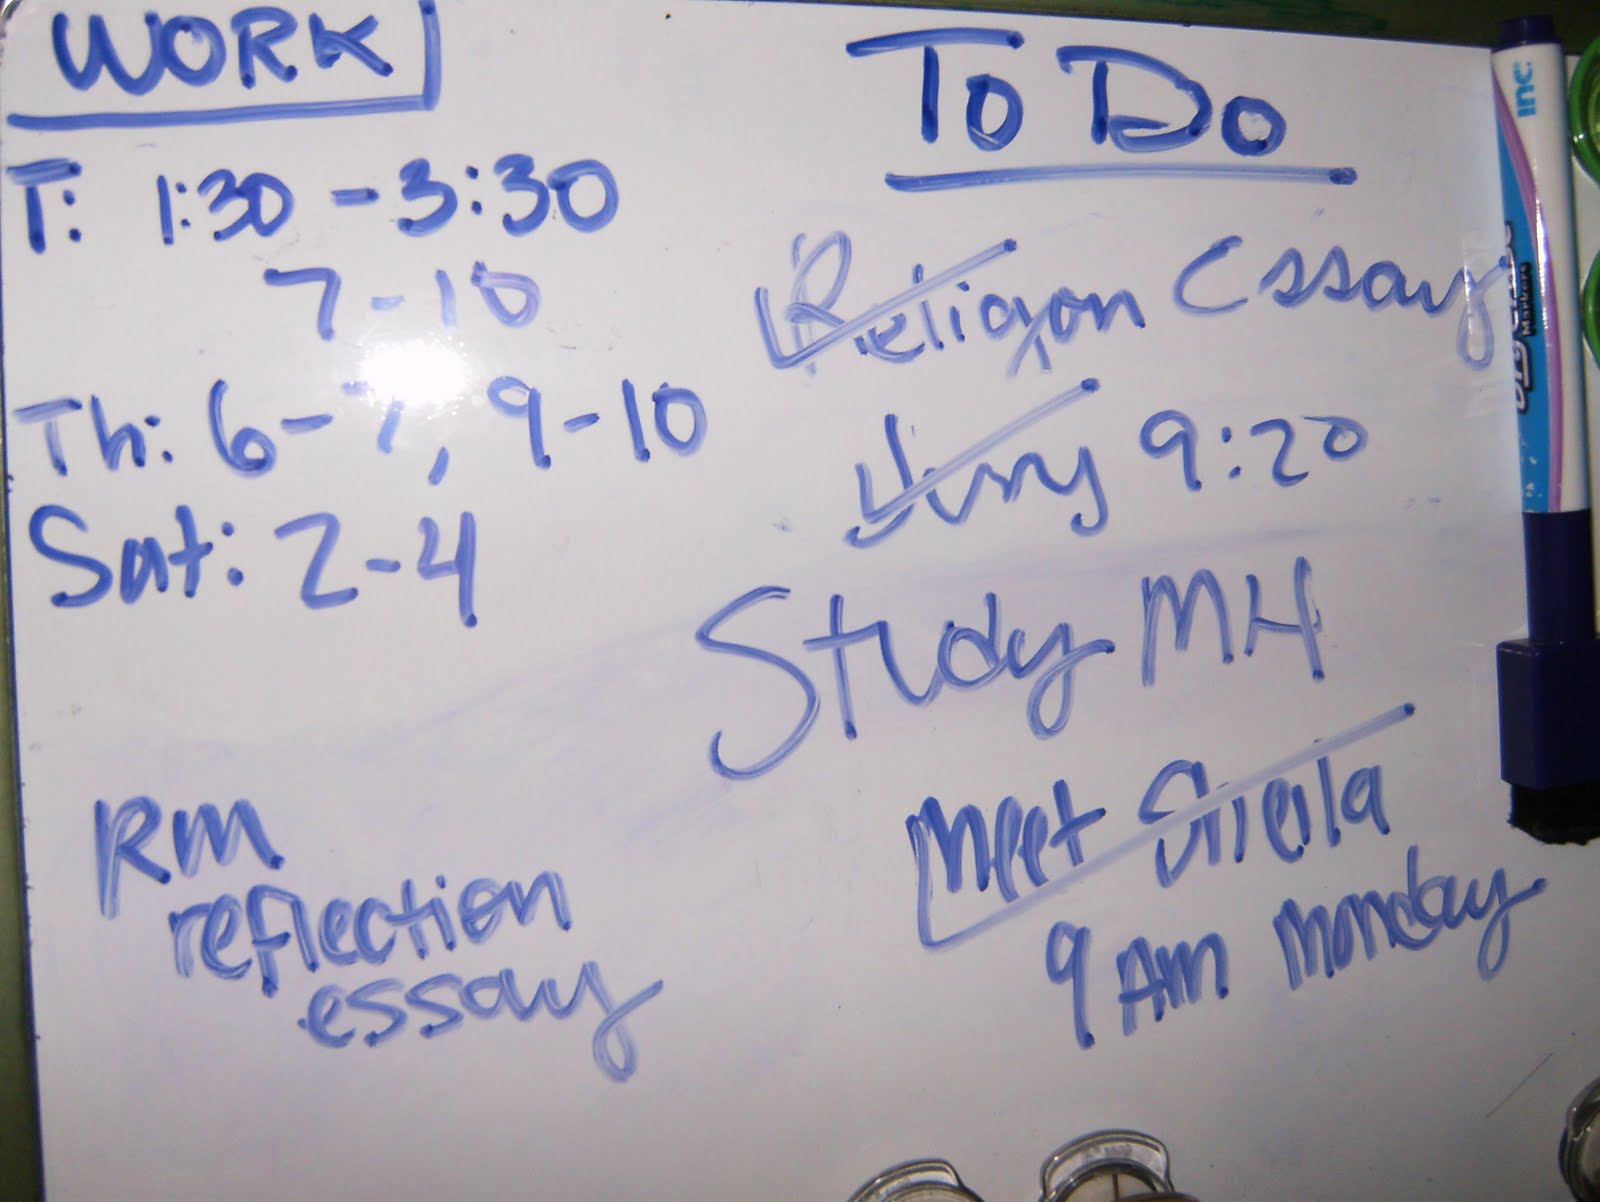 WORK
T: 1:30 - 3:30
7-10
Th: 6-7, 9-10
Sat: 2-4
RM
reflection
essay
To Do
Religion Essay
9:20
Study MH
Meet Sheila
9 AM Monday
inc.
Markers